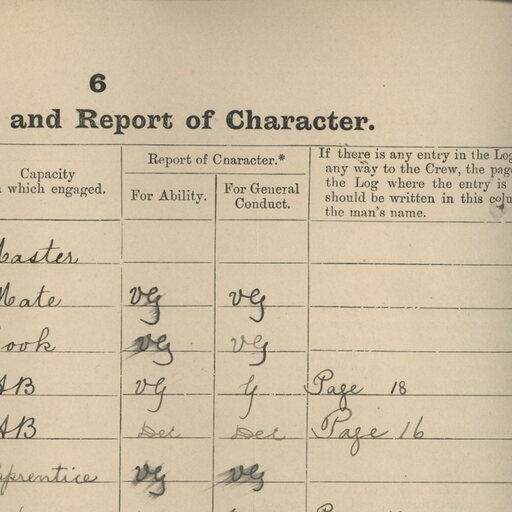 6
and Report of Character.
Capacity
which engaged.
Report of Character.*
For Ability.
For General
Conduct.
If there is any entry in the Log
any way to the Crew, the page
the Log where the entry is
should be written in this colu
the man's name.
Master
Mate VG VG
Cook VG VG
AB VG G Page 18
AB Dec Dec Page 16
Apprentice VG VG